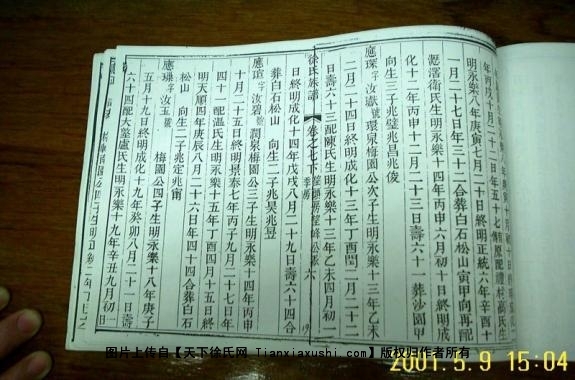 明永樂八年庚寅七月二十日終明正統六年辛酉十
一月二十七日年三十二合葬白石松山寅甲向再配
滘衛氏生明永樂十四年丙申六月初十日終明成
化十二年丙申十二月二十三日壽六十一葬沙園甲
向生三子兆璧兆昌兆俊
應琛字汝嶽號環泉梅園公次子生明永樂十三年乙未
二月二十四日終明成化十三年丁酉閏二月二十二
日壽六十三配陳氏生明永樂十三年乙未四月初二
徐氏族譜 卷之七下 六
日終明成化十四年戊戌八月二十九日壽六十四合
葬白石松山 向生二子兆昊兆昱
應瑄字汝碧號潤泉梅園公三子生明永樂十四年丙申
十月二十五日終明景泰七年丙子九月二十七日年
四十一配溫氏生明永樂十五年丁酉四月十五日終
明天順四年庚辰八月二十六日年四十四合葬白石
松山 向生二子兆定兆甯
應璪字汝玉號 梅園公四子生明永樂十八年庚子
五月十九日終明成化十九年癸卯八月二十 日壽
六十四配大墪盧氏生明永樂十九年辛丑九月初
图片上传自【天下徐氏网 Tianxiaxushi.com】版权归作者所有
2001.5.9 15:04